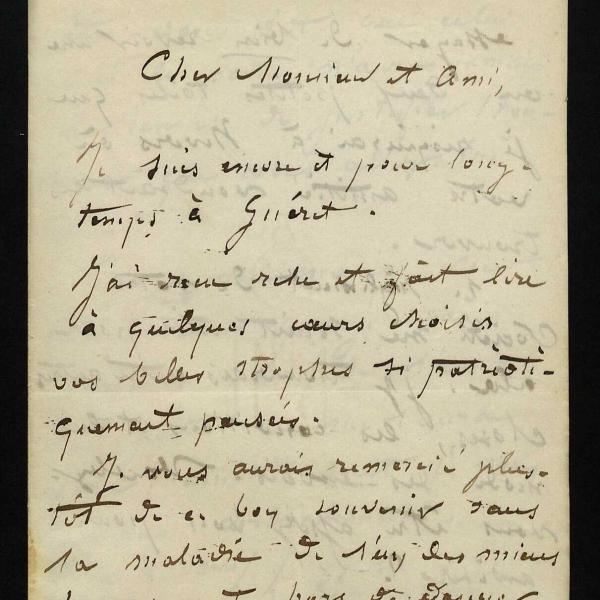 Cher Monsieur et Ami,
Je suis encore et pour long-
temps à Guéret.
J'ai reçu relu et fait lire
à quelques cœurs choisis
vos belles strophes si patrioti-
quement pensées.
Je vous aurais remercié plus-
tôt de ce bon souvenir sans
la maladie de l'un des miens
hors de danger